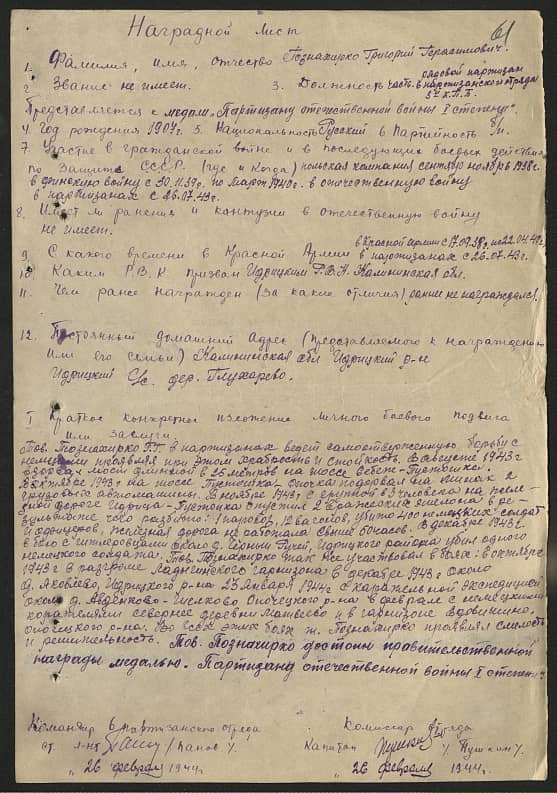 61
Наградной лист
1. Фамилия, имя, отчество Познахирко Григорий Герасимович.
2. Звание не имеет. 3. Должность рядовой партизан
партизанского отряда
Представляется к медали „Партизану отечественной войны I степени".
4. Год рождения 1907г. 5. Национальность Русский 6. Партийность б/п.
7. Участие в гражданской войне и в последующих боевых действиях
по защите СССР (где и когда) польская компания сентябрь ноябрь 1938г.
в финскую войну с 30.11.39г. по март 1940г. в отечественную войну
в партизанах с 26.07.43г.
8. Имеет ли ранения и контузии в отечественную войну
не имеет.
в Красной армии с
9. С какого времени в Красной Армии в партизанах с 26.07.43г.
10. Каким Р.В.К. призван Идрицким Р.В.К. Калининская обл.
11. Чем ранее награжден (за какие отличия) ранее не награждался.
12. Постоянный домашний адрес (представляемого к награждению
или его семьи) Калининская обл Идрицкий р-н
Идрицкий с/с. дер. Глухарево.
I Краткое конкретное изложение личного боевого подвига
или заслуги
Тов. Познахирко Г.Г. в партизанах ведет самоотверженную борьбу с
немцами проявляя при этом храбрость и стойкость. В августе 1943г
взорвал мост длинной в 25 метров на шоссе Себеж-Пустошка.
В октябре 1943г на шоссе Пустошка-Опочка подорвал на минах 2
грузовых автомашины. В ноябре 1943г с группой в 3 человека на желе-
зной дороге Идрица-Пустошка спустил 2 вражеских эшелона в ре-
зультате чего разбито: 1 паровоз, 12 вагонов, убито немецких солдат
и офицеров. Железная дорога не работала свыше часов. В декабре 1943г.
в бою с гитлеровцами около д. Идрицкого района убил одного
немецкого солдата. Тов. Познахирко так же участвовал в боях: в октябре
1943г в разгроме гарнизона в декабре 1943г около
д. Яковлево, Идрицкого р-на 23 января 1944г с карательной экспедицией
около д. Авденково- Опочецкого р-на в феврале с немецкими
карателями севернее деревни Матвеево и в гарнизоне Вдовикино.
Опочецкого р-на. Во всех этих боях т. Познахирко проявлял смелость
и решительность. Тов. Познахирко достоин правительственной
награды медалью. Партизану отечественной войны I степени.
Командир 6 партизанского отряда Комиссар отряда
ст. л-нт /Панов/. Капитан /Пушкин/.
„26 февраля 1944г. „26 февраля 1944г.